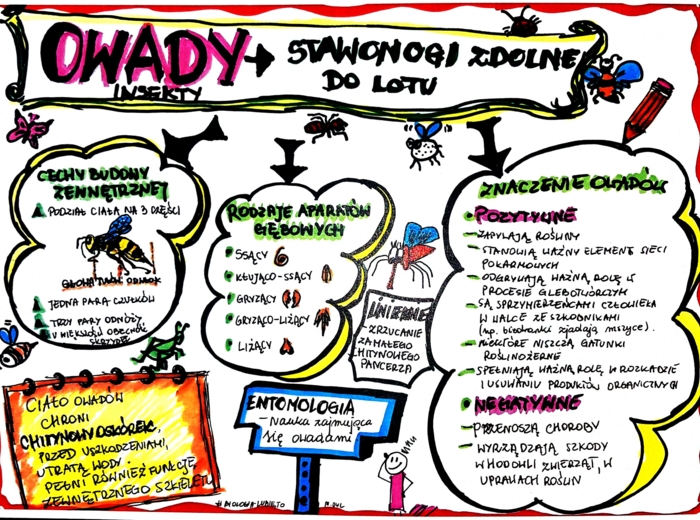 OWADY → STAWONOGI ZDOLNE
DO LOTU
INSEKTY
CECHY BUDOWY
ZEWNĘTRZNEJ
PODZIAŁ CIAŁA NA 3 CZĘŚCI
GŁOWA TUŁÓW ODWŁOK
JEDNA PARA CZUŁKÓW
TRZY PARY ODNÓŻY
W WIĘKSZOŚCI OBECNOŚĆ
SKRZYDEŁ
RODZAJE APARATÓW
GĘBOWYCH
SSĄCY
KŁUJĄCO-SSĄCY
GRYZĄCY
GRYZĄCO-LIŻĄCY
LIŻĄCY
LINIENIE
- ZRZUCANIE
ZA MAŁEGO
CHITYNOWEGO
PANCERZA
ZNACZENIE OWADÓW
POZYTYWNE
- ZAPYLAJĄ ROŚLINY
- STANOWIĄ WAŻNY ELEMENT SIECI
POKARMOWYCH
- ODGRYWAJĄ WAŻNĄ ROLĘ W
PROCESIE GLEBOTWÓRCZYM
- SĄ SPRZYMIERZEŃCAMI CZŁOWIEKA
W WALCE ZE SZKODNIKAMI
(np. biedronki zjadają mszyce).
- NIEKTÓRE NISZCZĄ GATUNKI
ROŚLINOŻERNE
- SPEŁNIAJĄ WAŻNĄ ROLĘ W ROZKŁADZIE
I USUWANIU PRODUKTÓW ORGANICZNYCH
NEGATYWNE
- PRZENOSZĄ CHOROBY
- WYRZĄDZAJĄ SZKODY
W HODOWLI ZWIERZĄT, W
UPRAWACH ROŚLIN
CIAŁO OWADÓW
CHRONI
CHITYNOWY OSKÓREK,
PRZED USZKODZENIAMI,
UTRATĄ WODY.
PEŁNI RÓWNIEŻ FUNKCJĘ
ZEWNĘTRZNEGO SZKIELETU
ENTOMOLOGIA
- Nauka zajmująca
się owadami